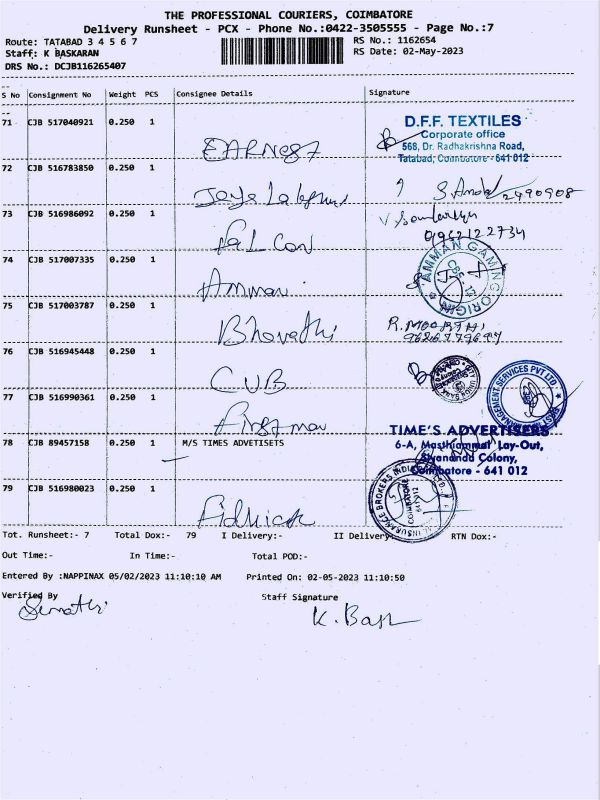 THE PROFESSIONAL COURIERS, COIMBATORE
Delivery Runsheet - PCX - Phone No.:0422-3505555 - Page No.:7
Route: TATABAD 3 4 5 6 7
RS No.: 1162654
Staff: K BASKARAN
RS Date: 02-May-2023
DRS No.: DCJB116265407
S No Consignment No Weight PCS Consignee Details Signature
71 CJB 517040921 0.250 1
D.F.F. TEXTILES
Corporate office
568, Dr. Radhakrishna Road,
Tatabad, Coimbatore - 641 012
72 CJB 516783850 0.250 1
2490908
73 CJB 516986092 0.250 1
Falcon
9962122734
74 CJB 517007335 0.250 1
Amman
AMMAN GAMING ORIGIN
CBE 12
75 CJB 517003787 0.250 1
Bharathi
R. MOORTHI
76 CJB 516945448 0.250 1
CUB
77 CJB 516990361 0.250 1
MANAGEMENT SERVICES PVT LTD
78 CJB 89457158 0.250 1 M/S TIMES ADVETISETS
TIME'S ADVERTISERS
6-A, Masthiammal Lay-Out,
Sivananda Colony,
Coimbatore - 641 012
79 CJB 516980023 0.250 1
INSURANCE BROKERS
COIMBATORE
641 012
Tot. Runsheet:- 7 Total Dox:- 79 I Delivery:- II Delivery RTN Dox:-
Out Time:- In Time:- Total POD:-
Entered By :NAPPINAX 05/02/2023 11:10:10 AM Printed On: 02-05-2023 11:10:50
Verified By Staff Signature
K. Bask